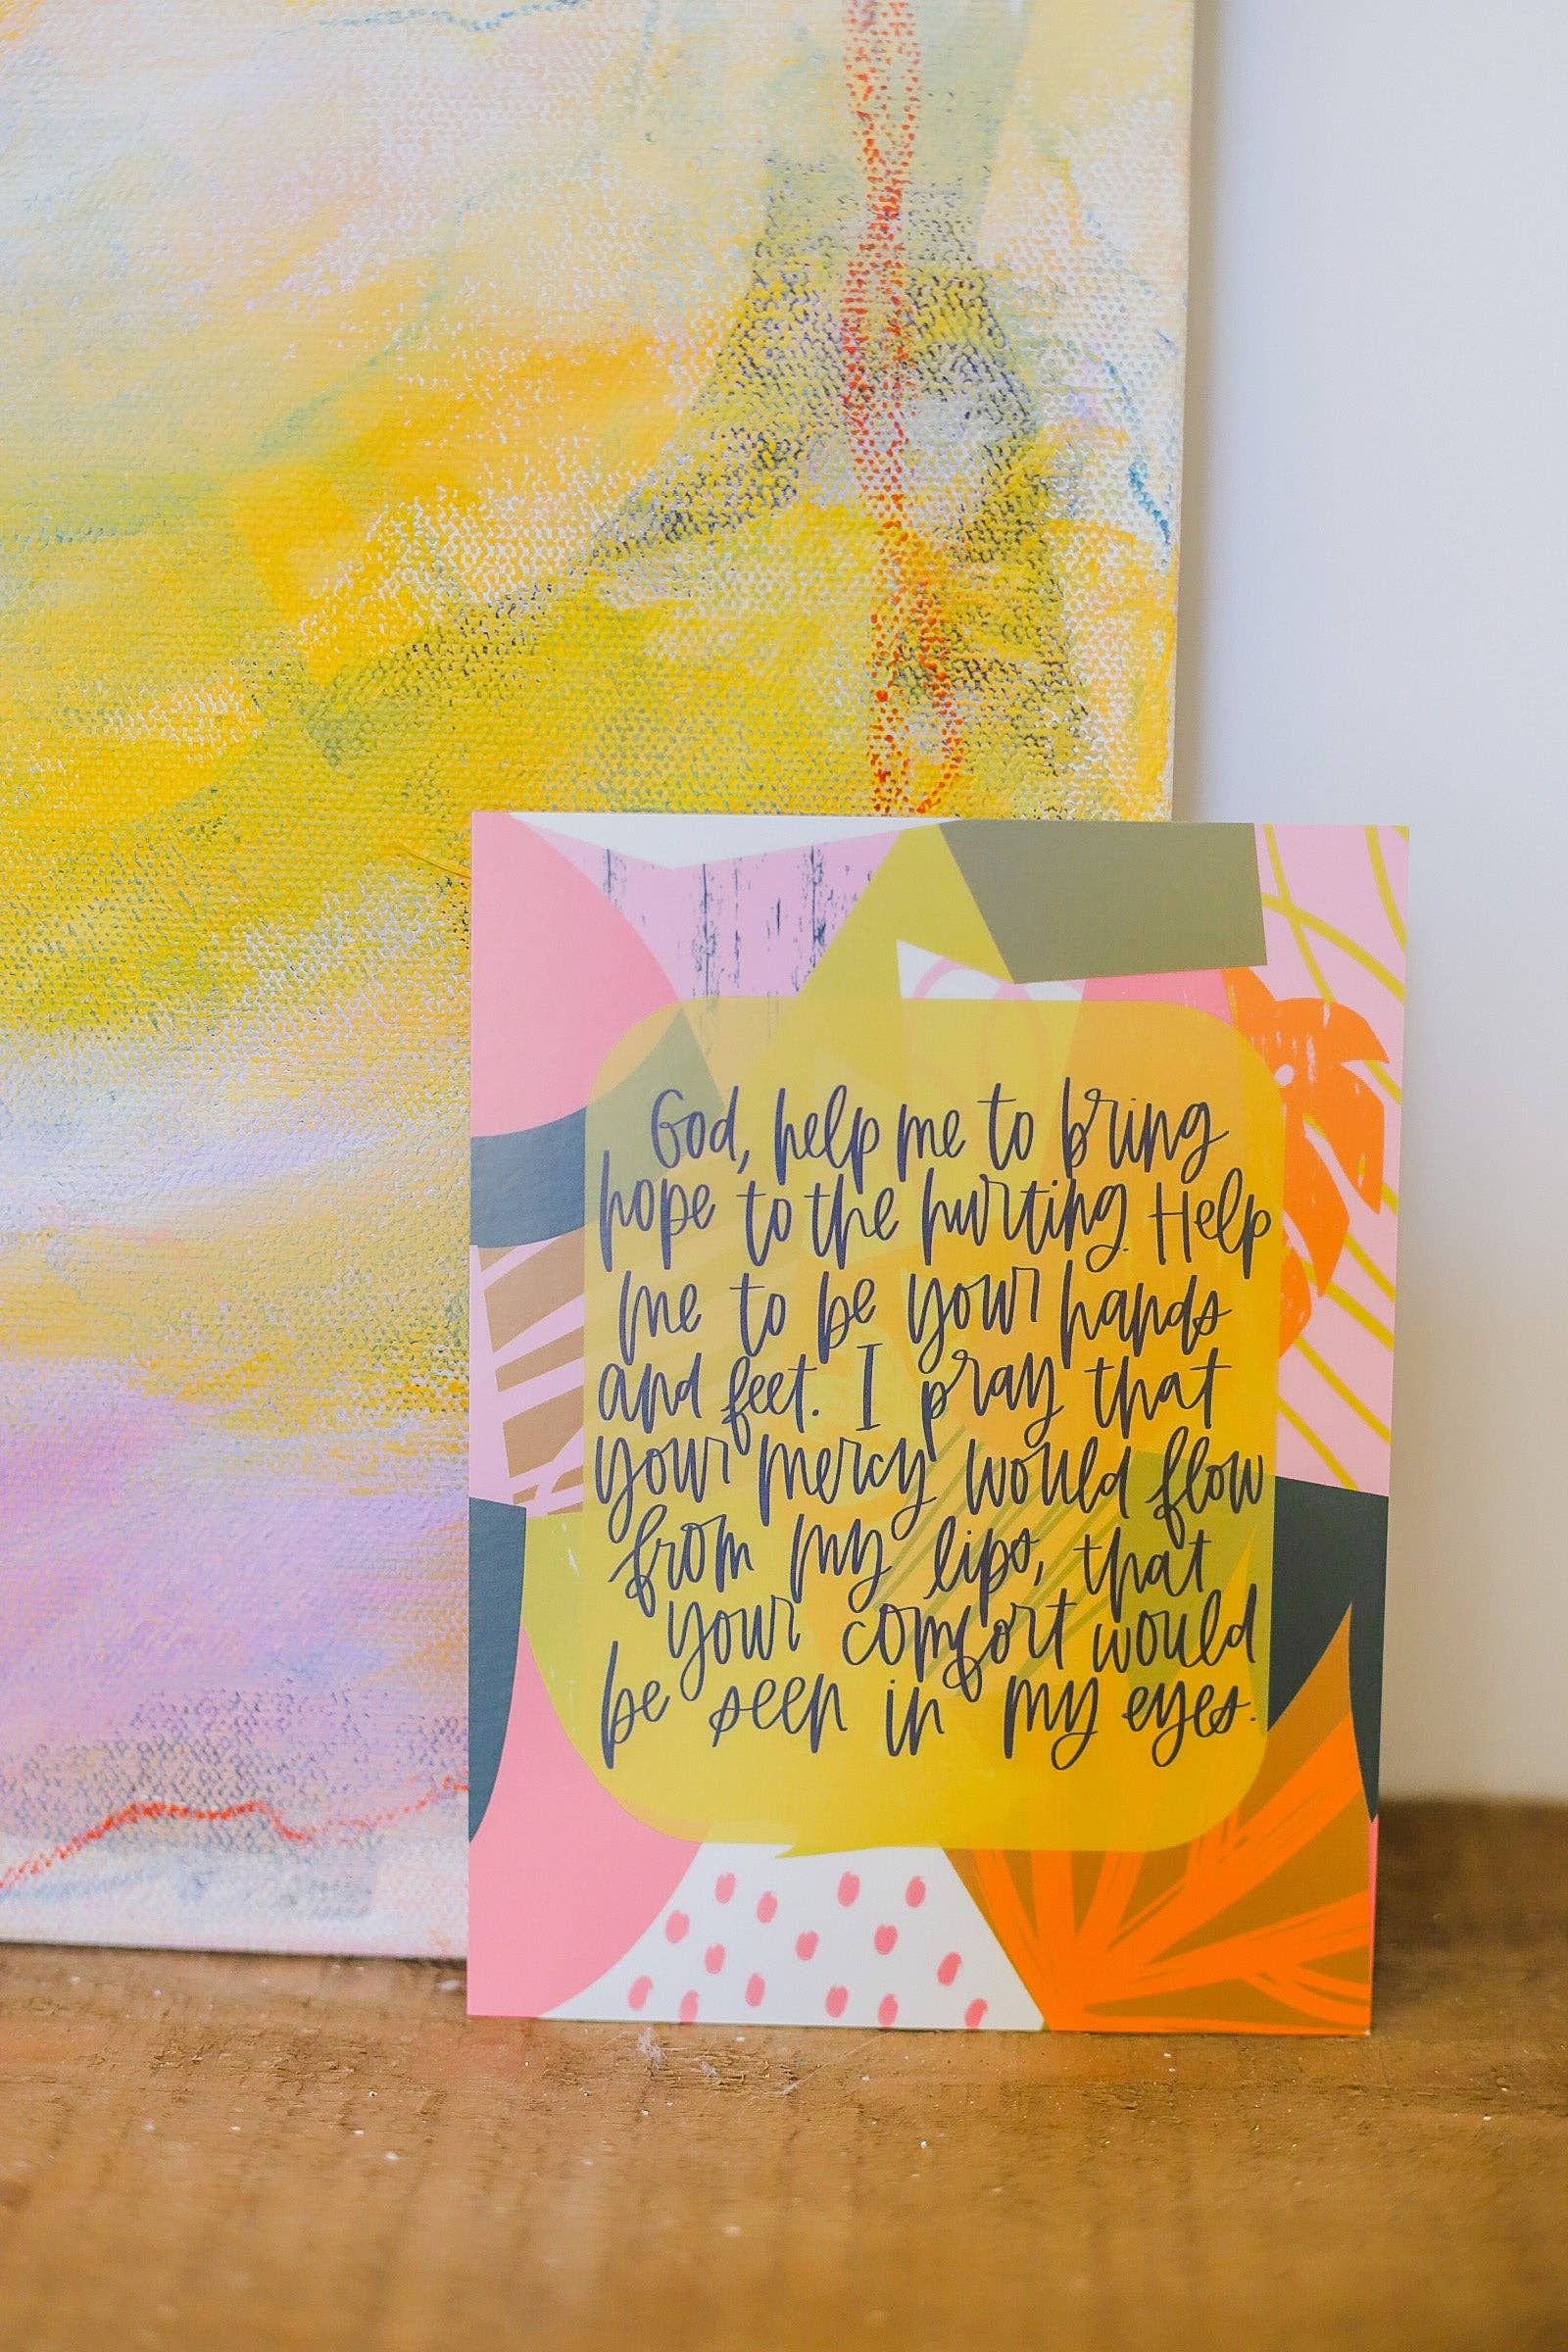 God, help me to bring
hope to the hurting. Help
me to be your hands
and feet. I pray that
your mercy would flow
from my lips, that
your comfort would
be seen in my eyes.